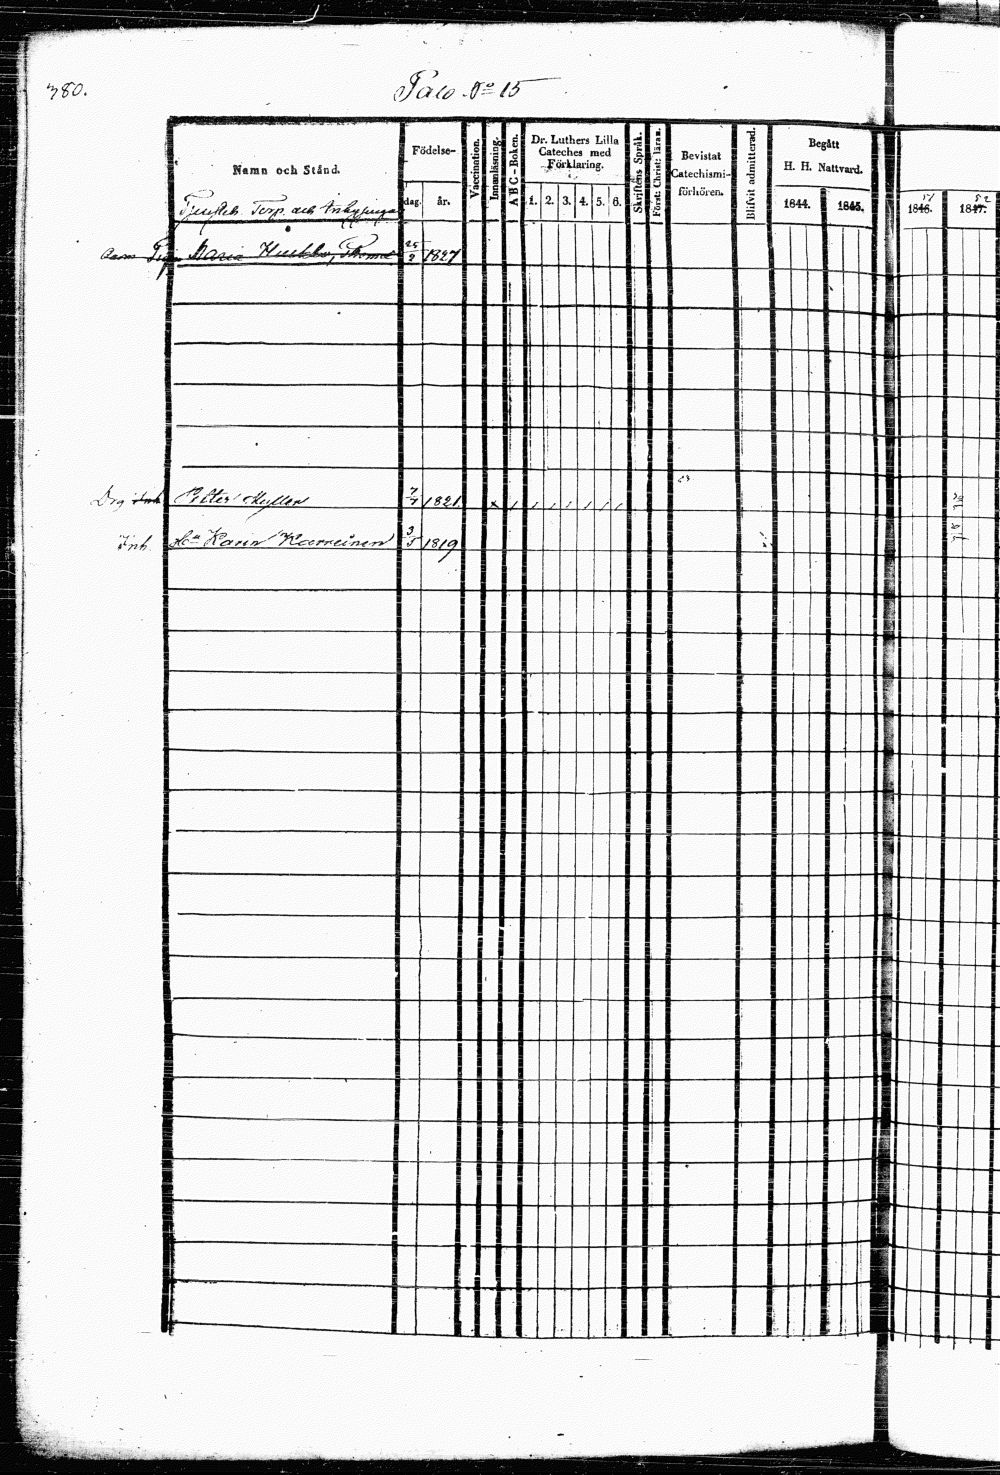 380. Paco No 15
Namn och Stånd.
Födelse-
dag. år.
Vaccination.
Innanläsning.
A B C-Boken.
Dr. Luthers Lilla
Cateches med
Förklaring.
1. 2. 3. 4. 5. 6.
Skriftens Språk.
Först: Christ: läran.
Bevistat
Catechismi-
förhören.
Blifvit admitterad.
Begått
H. H. Nattvard.
1844. 1845. 1846. 51 1847. 52
Torp. och
Maria 25/2 1827
Drg Petter Myller 7/7 1821
Inh. Hu Karin Karreinen 3/5 1819